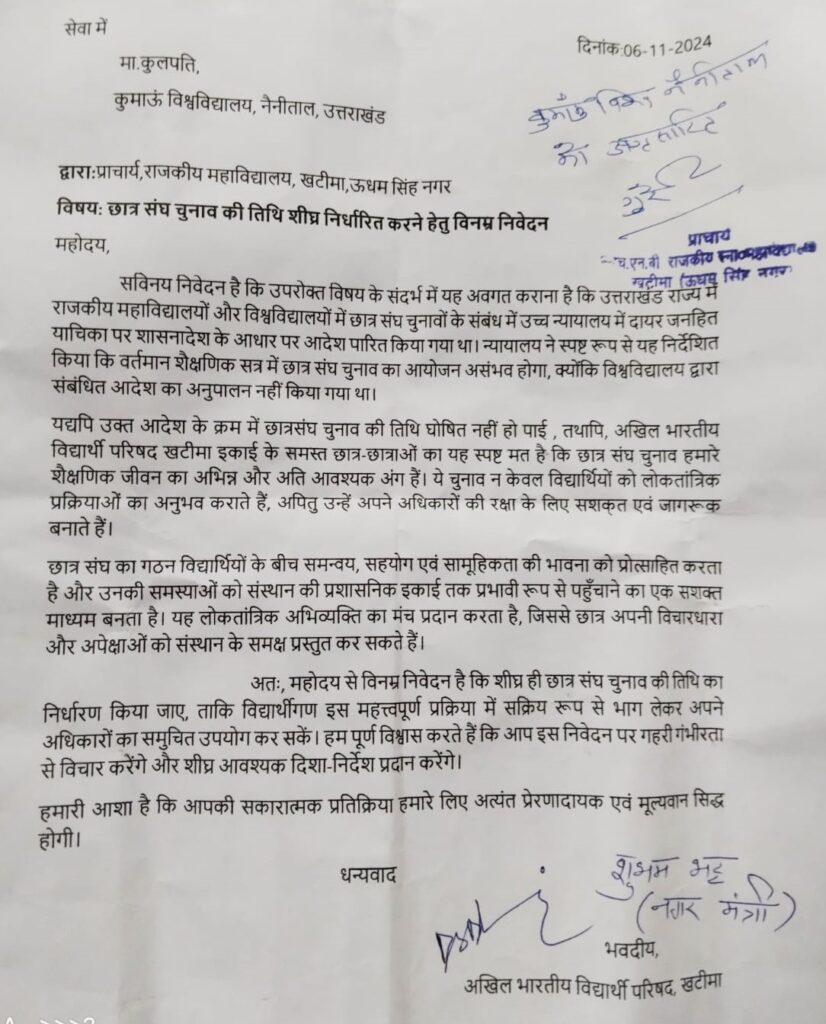 सेवा में
दिनांक:06-11-2024
मा.कुलपति,
कुमाऊं विश्वविद्यालय, नैनीताल, उत्तराखंड
कुमाऊँ वि०वि० नैनीताल
को
द्वारा:प्राचार्य,राजकीय महाविद्यालय, खटीमा,ऊधम सिंह नगर
विषय: छात्र संघ चुनाव की तिथि शीघ्र निर्धारित करने हेतु विनम्र निवेदन
महोदय,
प्राचार्य
एच.एन.बी राजकीय
खटीमा (ऊधम सिंह नगर)
सविनय निवेदन है कि उपरोक्त विषय के संदर्भ में यह अवगत कराना है कि उत्तराखंड राज्य में
राजकीय महाविद्यालयों और विश्वविद्यालयों में छात्र संघ चुनावों के संबंध में उच्च न्यायालय में दायर जनहित
याचिका पर शासनादेश के आधार पर आदेश पारित किया गया था। न्यायालय ने स्पष्ट रूप से यह निर्देशित
किया कि वर्तमान शैक्षणिक सत्र में छात्र संघ चुनाव का आयोजन असंभव होगा, क्योंकि विश्वविद्यालय द्वारा
संबंधित आदेश का अनुपालन नहीं किया गया था।
यद्यपि उक्त आदेश के क्रम में छात्रसंघ चुनाव की तिथि घोषित नहीं हो पाई , तथापि, अखिल भारतीय
विद्यार्थी परिषद खटीमा इकाई के समस्त छात्र-छात्राओं का यह स्पष्ट मत है कि छात्र संघ चुनाव हमारे
शैक्षणिक जीवन का अभिन्न और अति आवश्यक अंग हैं। ये चुनाव न केवल विद्यार्थियों को लोकतांत्रिक
प्रक्रियाओं का अनुभव कराते हैं, अपितु उन्हें अपने अधिकारों की रक्षा के लिए सशक्त एवं जागरूक
बनाते हैं।
छात्र संघ का गठन विद्यार्थियों के बीच समन्वय, सहयोग एवं सामूहिकता की भावना को प्रोत्साहित करता
है और उनकी समस्याओं को संस्थान की प्रशासनिक इकाई तक प्रभावी रूप से पहुँचाने का एक सशक्त
माध्यम बनता है। यह लोकतांत्रिक अभिव्यक्ति का मंच प्रदान करता है, जिससे छात्र अपनी विचारधारा
और अपेक्षाओं को संस्थान के समक्ष प्रस्तुत कर सकते हैं।
अतः, महोदय से विनम्र निवेदन है कि शीघ्र ही छात्र संघ चुनाव की तिथि का
निर्धारण किया जाए, ताकि विद्यार्थीगण इस महत्त्वपूर्ण प्रक्रिया में सक्रिय रूप से भाग लेकर अपने
अधिकारों का समुचित उपयोग कर सकें। हम पूर्ण विश्वास करते हैं कि आप इस निवेदन पर गहरी गंभीरता
से विचार करेंगे और शीघ्र आवश्यक दिशा-निर्देश प्रदान करेंगे।
हमारी आशा है कि आपकी सकारात्मक प्रतिक्रिया हमारे लिए अत्यंत प्रेरणादायक एवं मूल्यवान सिद्ध
होगी।
धन्यवाद
शुभम भट्ट
(नगर मंत्री)
भवदीय,
अखिल भारतीय विद्यार्थी परिषद, खटीमा